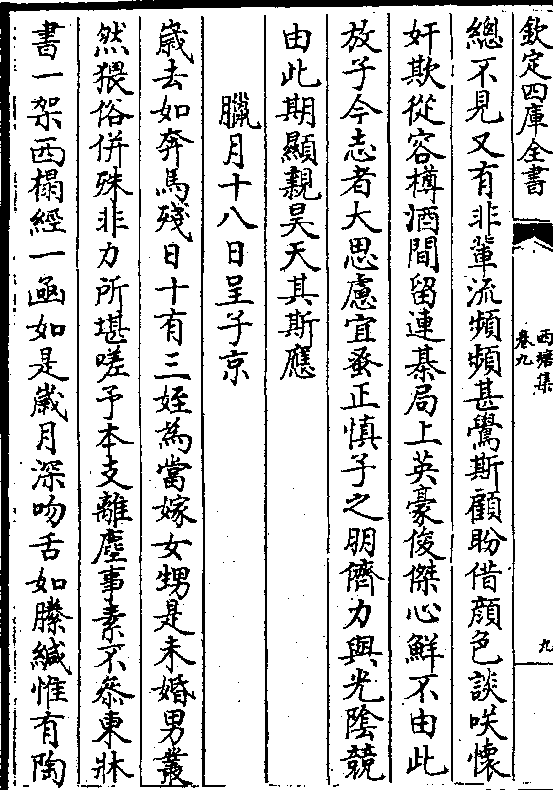 欽定四庫全書
西塘集
卷九
九
總不見又有非軰流頻頻甚鸎斯顧盼借顔色談咲懐
奸欺從容樽酒間留連棊局上英豪俊傑心鮮不由此
放子今志者大思慮宜蚤正慎子之朋儕力與光隂競
由此期顯親昊天其斯應
臘月十八日呈子京
嵗去如奔馬殘日十有三姪為當嫁女甥是未婚男叢
然猥俗併殊非力所堪嗟予本支離塵事素不叅東牀
書一架西榻經一凾如是嵗月深吻舌如縢緘惟有陶